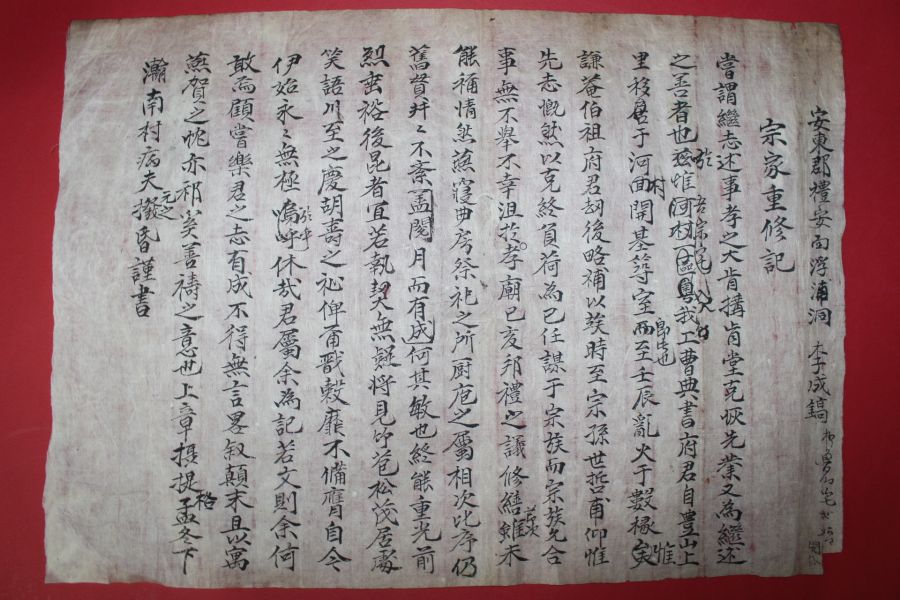 安東郡禮安面浮浦洞 李成鎬
宗家重修記
嘗謂繼志述事孝之大肯搆肯堂克恢先業又為繼述
之善者也玆惟河村 我工曹典書府君自豊山上
里移居于河回開基築室而至壬辰亂火于數椽
謙菴伯祖府君刼後略補以俟時至宗孫世哲甫仰惟
先志慨然以克終負荷為己任謀于宗族而宗族允合
事無不舉不幸沮於孝廟己亥邦禮之議修繕雖未
能稱情然燕寢曲房祭祀之所厨庖之屬相次比序仍
舊賛幷〻不紊 月而有成何其敏也終能重光前
烈垂裕後昆者宜若執契無疑將見竹苞松茂居處
笑語川至之慶胡壽之祉俾爾戩穀靡不備膺自今
伊始永〻無極嗚呼休哉君屬余為記若文則余何
敢焉顧嘗樂君之志有成不得無言畧叙顛末且以寓
燕賀之忱亦祁奚善禱之意也上章攝提格孟冬下
灞南村病夫 昏謹書